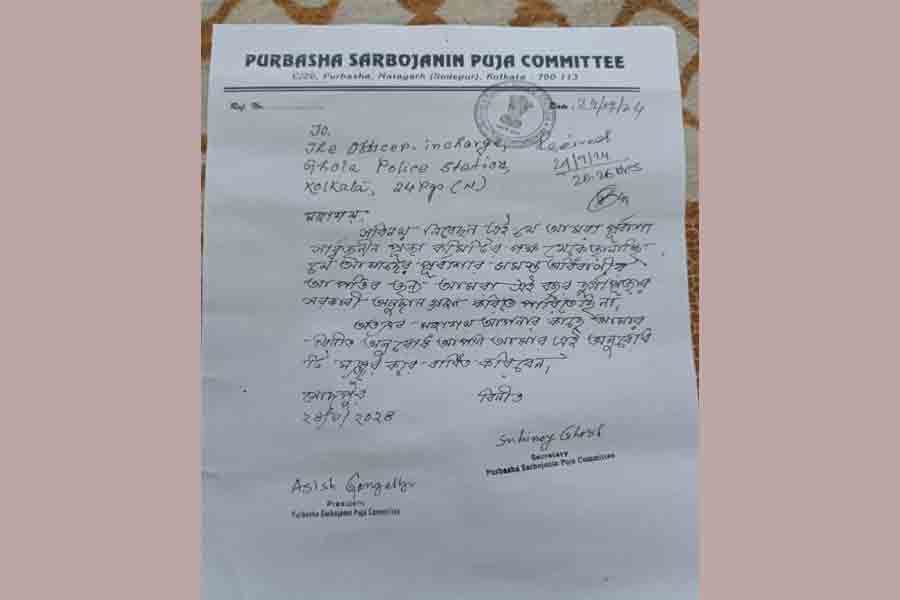 PURBASHA SARBOJANIN PUJA COMMITTEE
C/20, Purbasha, Natagarh (Sodepur), Kolkata - 700 113
Ref. No.
Date
To,
The Officer-incharge, Received
Ghola Police Station,
Kolkata, 24 Pgs (N) 20.26 Hrs
মহাশয়,
সবিনয় নিবেদন এই যে আমরা পূর্বাশা
সার্বজনীন পূজা কমিটির পক্ষ থেকে জানাচ্ছি
যে আমাদের পূর্বাশার সমস্ত অধিবাসীর
আপত্তির জন্য আমরা এই বছর দুর্গাপূজার
সরকারী অনুদান গ্রহণ করিতে পারিতেছি না।
অতএব মহাশয় আপনার কাছে আমার
বিনীত অনুরোধ আপনি আমার এই অনুরোধ
টি মঞ্জুর করে বাধিত করিবেন।
সোদপুর বিনীত
২৪/৮/২০২৪
Subinoy Ghosh
Secretary
Purbasha Sarbojanin Puja Committee
Asish Gangelly
President
Purbasha Sarbojanin Puja Committee